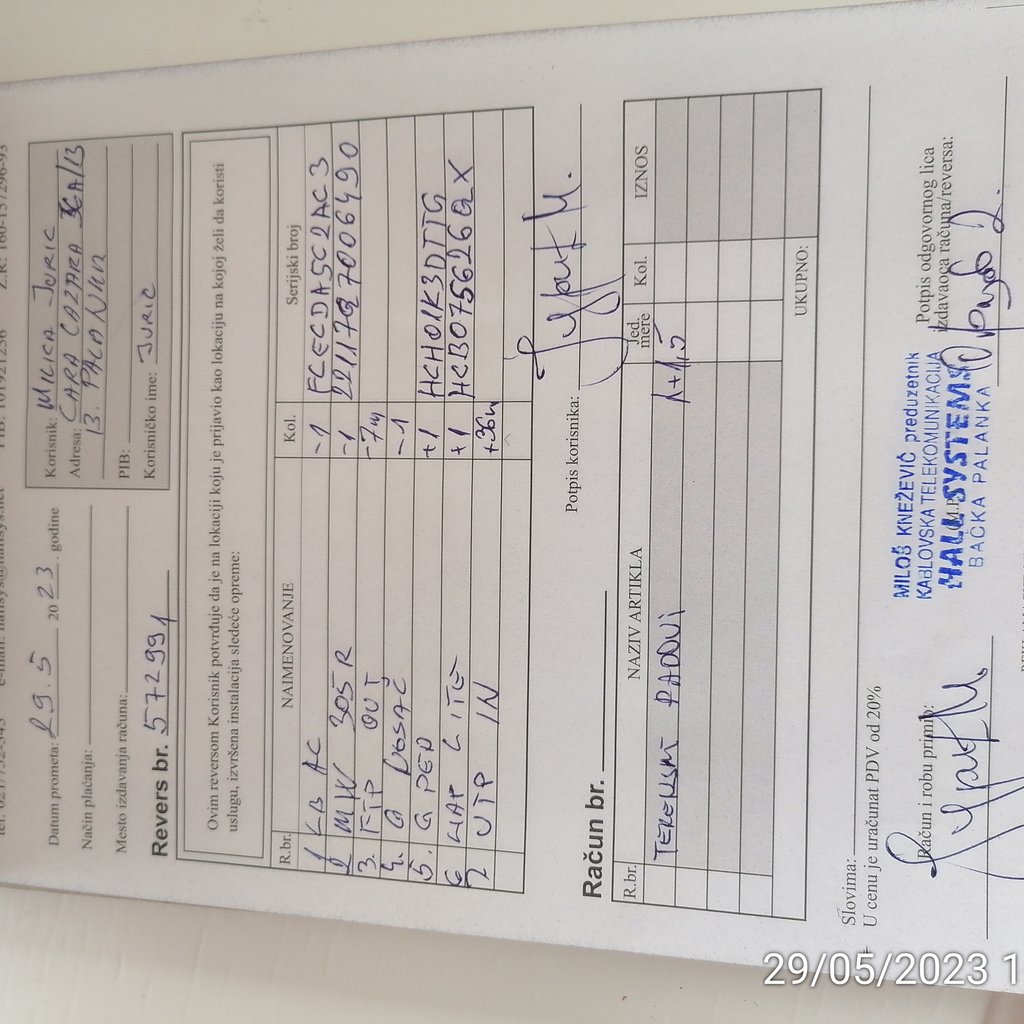 Datum prometa: 29.5 2023. godine
Način plaćanja:
Mesto izdavanja računa:
Revers br. 572991
Korisnik: MILICA JURIC
Adresa: CARA LAZARA
B. PALANKA
PIB:
Korisničko ime: JURIC
Ovim reversom Korisnik potvrđuje da je na lokaciji koju je prijavio kao lokaciju na kojoj želi da koristi
uslugu, izvršena instalacija sledeće opreme:
R.br. NAIMENOVANJE Kol. Serijski broj
1 LB AC -1 FCECDA5C2AC3
2 MW 305R -1 22117927006490
3. FTP OUT -7m
4. G NOSAČ -1
5. G PED +1 HCH01K3DTTG
6 WAP LITE +1 HCB075626QX
7 UTP IN +36m
Potpis korisnika:
Račun br.
R.br. NAZIV ARTIKLA Jed. mere Kol. IZNOS
TERENSKI RADOVI 1+1,5
UKUPNO:
Slovima:
+ U cenu je uračunat PDV od 20%
Račun i robu primio:
MILOŠ KNEŽEVIĆ preduzetnik
KABLOVSKA TELEKOMUNIKACIJA
MALL SYSTEMS
BAČKA PALANKA
Potpis odgovornog lica
izdavaoca računa/reversa:
29/05/2023 1